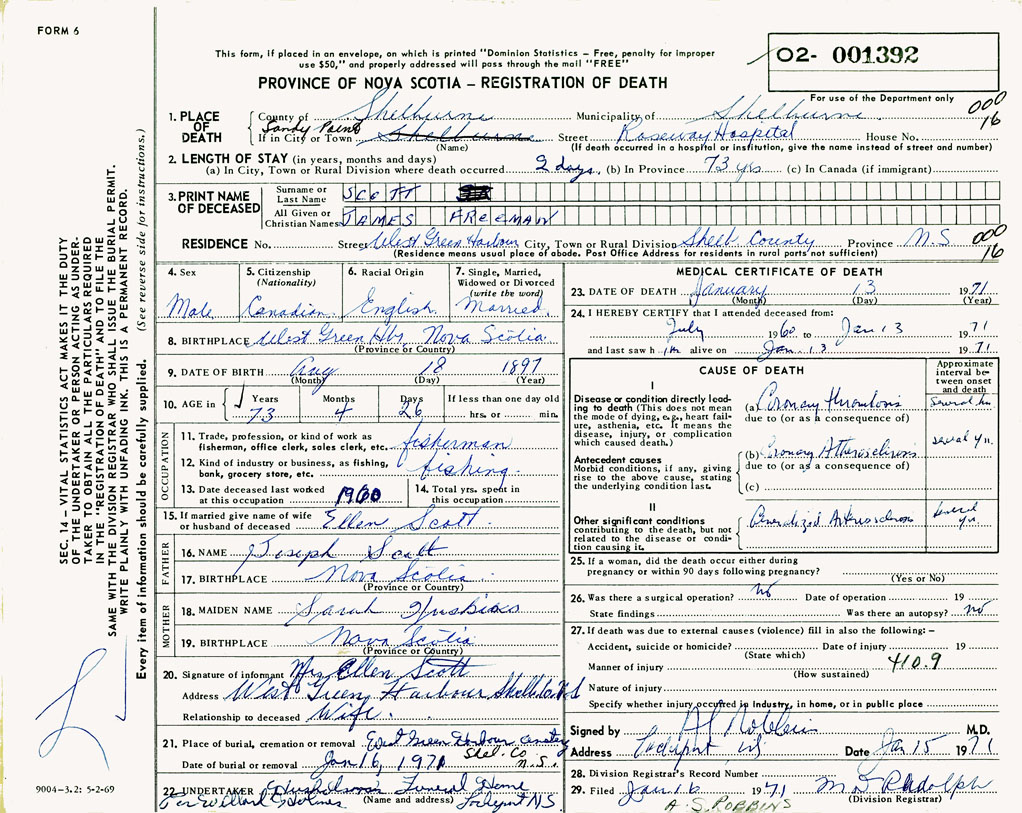 FORM 6
This form, if placed in an envelope, on which is printed "Dominion Statistics – Free, penalty for improper
use $50," and properly addressed will pass through the mail "FREE"
O2- 001392
PROVINCE OF NOVA SCOTIA – REGISTRATION OF DEATH
For use of the Department only
1. PLACE OF DEATH
County of Shelburne Municipality of Shelburne 000
Sandy Point 16
If in City or Town Shelburne Street Roseway Hospital House No.
(Name) (If death occurred in a hospital or institution, give the name instead of street and number)
2. LENGTH OF STAY (in years, months and days)
(a) In City, Town or Rural Division where death occurred 2 days (b) In Province 73 yrs (c) In Canada (if immigrant)
3. PRINT NAME OF DECEASED
Surname or Last Name SCOTT
All Given or Christian Names JAMES FREEMAN
RESIDENCE No. Street West Green Harbour City, Town or Rural Division Shelb County Province N.S 000
(Residence means usual place of abode. Post Office Address for residents in rural parts not sufficient) 16
4. Sex Male
5. Citizenship (Nationality) Canadian
6. Racial Origin English
7. Single, Married, Widowed or Divorced (write the word) Married
8. BIRTHPLACE West Green Hbr Nova Scotia
(Province or Country)
9. DATE OF BIRTH Aug 18 1897
(Month) (Day) (Year)
10. AGE in Years Months Days If less than one day old
73 4 26 hrs. or min.
OCCUPATION
11. Trade, profession, or kind of work as fisherman
fishermon, office clerk, soles clerk, etc.
12. Kind of industry or business, as fishing, fishing
bank, grocery store, etc.
13. Date deceased last worked at this occupation 1960
14. Total yrs. spent in this occupation
15. If married give name of wife or husband of deceased Ellen Scott
FATHER
16. NAME Joseph Scott
17. BIRTHPLACE Nova Scotia
(Province or Country)
MOTHER
18. MAIDEN NAME Sarah
19. BIRTHPLACE Nova Scotia
(Province or Country)
20. Signature of informant Mrs Ellen Scott
Address West Green Harbour Shelb. Co. N S
Relationship to deceased Wife.
21. Place of burial, cremation or removal West Green Harbour Cemetery
Shel. Co. N.S.
Date of burial or removal Jan 16, 1971
22. UNDERTAKER Funeral Home
Per Willard G Holmes (Name and address) Lockeport N S
MEDICAL CERTIFICATE OF DEATH
23. DATE OF DEATH January 13 1971
(Month) (Day) (Year)
24. I HEREBY CERTIFY that I attended deceased from:
July 1960 to Jan 13 1971
and last saw him alive on Jan. 13 1971
CAUSE OF DEATH
Approximate interval between onset and death
I
Disease or condition directly leading to death (This does not mean the mode of dying, e.g., heart failure, asthenia, etc. It means the disease, injury, or complication which caused death.)
(a) Coronary thrombosis Several hrs
due to (or as a consequence of)
Antecedent causes
Morbid conditions, if any, giving rise to the above cause, stating the underlying condition last.
(b) Coronary Atherosclerosis several yrs.
due to (or as a consequence of)
(c)
II
Other significant conditions
contributing to the death, but not related to the disease or condition causing it.
Generalized Arteriosclerosis Several yrs.
25. If a woman, did the death occur either during
pregnancy or within 90 days following pregnancy?
(Yes or No)
26. Was there a surgical operation? No Date of operation 19
State findings Was there an autopsy? no
27. If death was due to external causes (violence) fill in also the following: –
Accident, suicide or homicide? Date of injury 19
(State which)
Manner of injury 410.9
(How sustained)
Nature of injury
Specify whether injury occurred in industry, in home, or in public place
Signed by M.D.
Address Lockeport NS Date Jan 15 1971
28. Division Registrar's Record Number
29. Filed Jan 16 1971
(Division Registrar)
A. S. ROBBINS
SEC. 14 – VITAL STATISTICS ACT MAKES IT THE DUTY
OF THE UNDERTAKER OR PERSON ACTING AS UNDER-
TAKER TO OBTAIN ALL THE PARTICULARS REQUIRED
IN THE "REGISTRATION OF DEATH" AND TO FILE THE
SAME WITH THE DIVISION REGISTRAR WHO SHALL ISSUE THE BURIAL PERMIT.
WRITE PLAINLY WITH UNFADING INK. THIS IS A PERMANENT RECORD.
Every item of information should be carefully supplied. (See reverse side for instructions.)
9004-3.2: 5-2-69